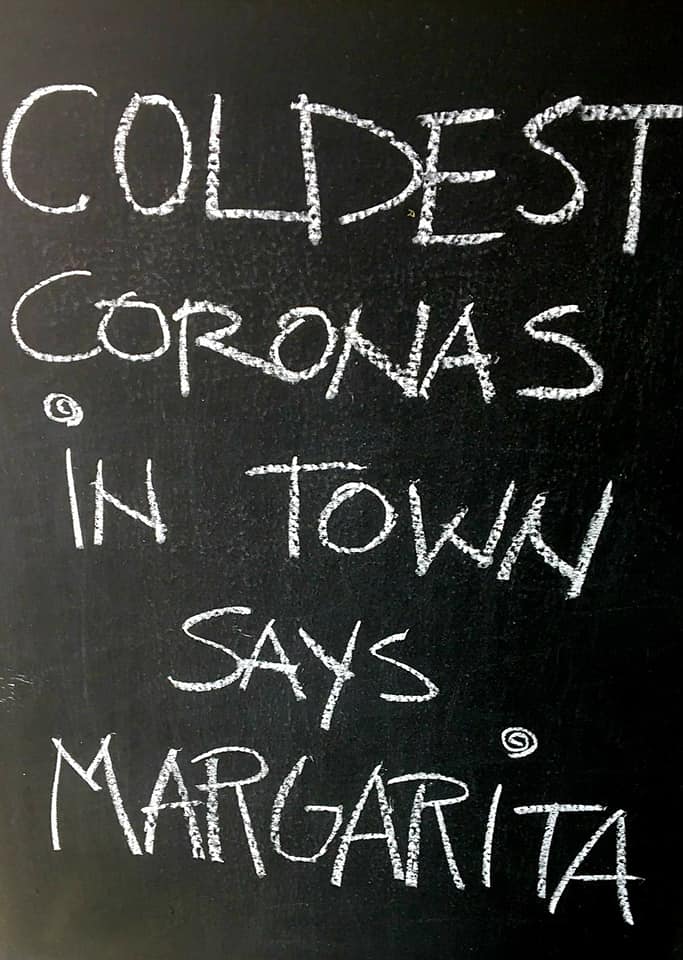 COLDEST
CORONAS
iN TOWN
SAYS
MARGARiTA